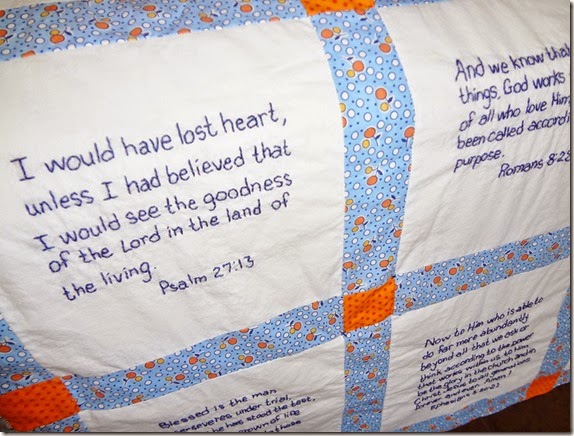 I would have lost heart,
unless I had believed that
I would see the goodness
of the Lord in the land of
the living.
Psalm 27:13
And we know that
things, God works
of all who love Him
been called accordi
purpose.
Romans 8:28
Now to Him who is able to
do far more abundantly
beyond all that we ask or
think according to the power
that works within us, to Him
be the glory in the church and in
Christ Jesus to all generations
forever and ever. Amen!
Ephesians 3:20-21
Blessed is the man
perseveres under trial,
he has stood the test,
crown of life
those